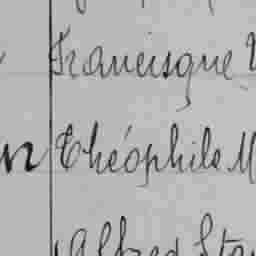 Francisque
Théophile M
Alfred Sta